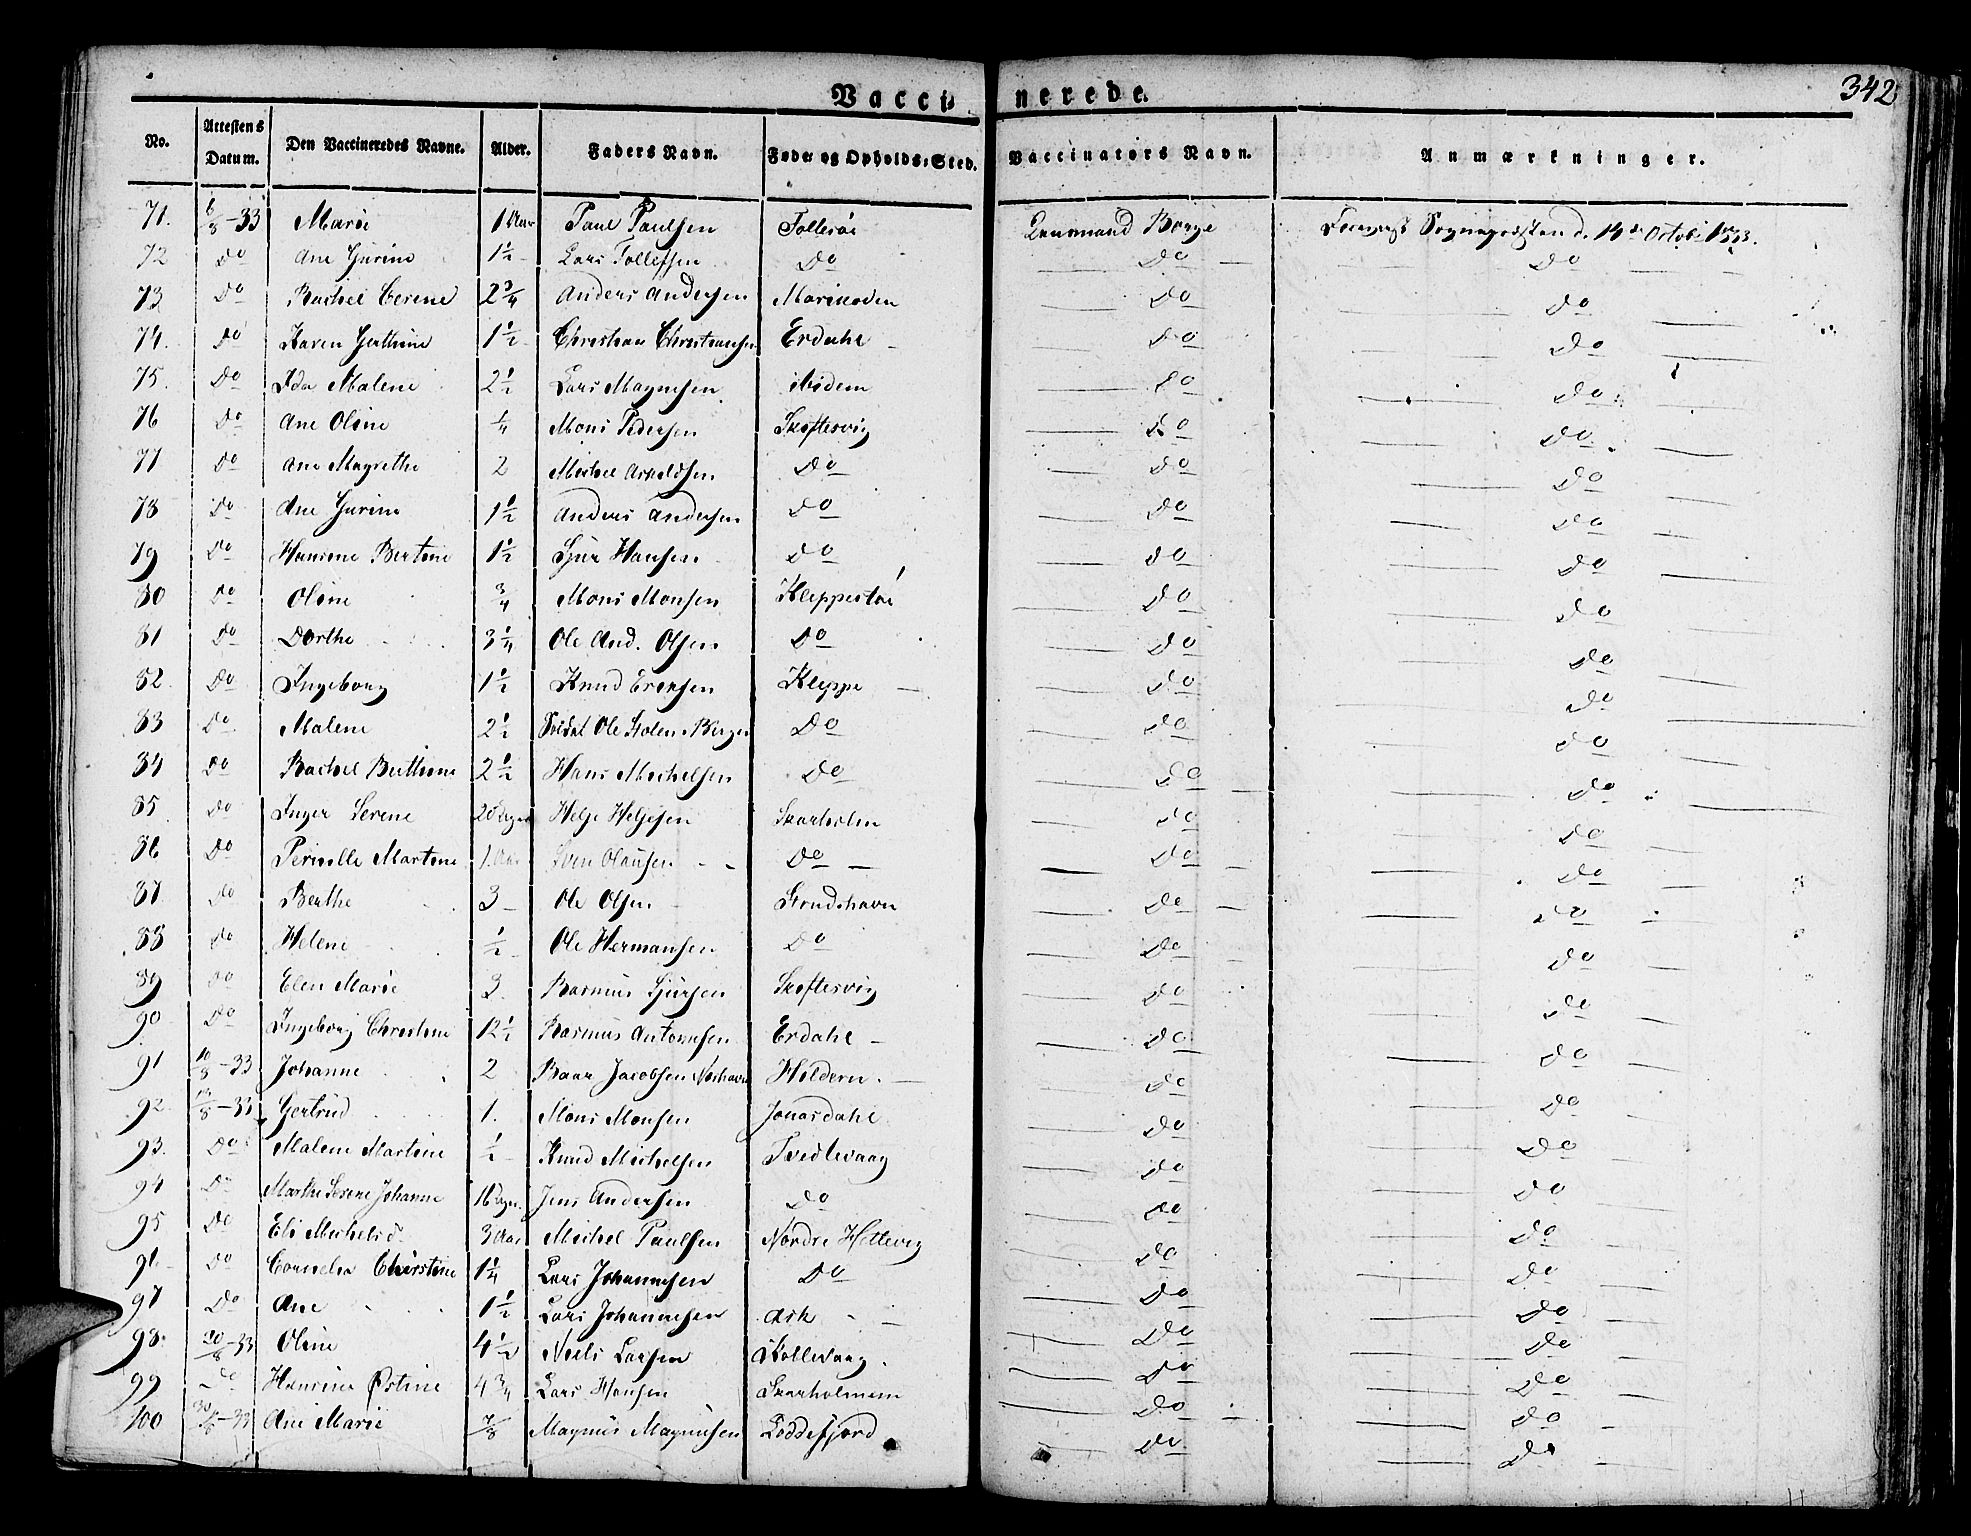 Vaccinerede.
342
No. Attestens Datum. Den Vaccineredes Navne. Alder. Faders Navn. Føde- og Opholds-Sted. Vaccinators Navn. Anmærkninger.
71. 6/8-33 Marie 1 Aar Paul Paulsen Follesøe Lensmand Do
72 Do Ane Gurine 1½ Lars Tollefsen Do Do Do
73 Do Rachel Cerene 2¾ Anders Andersen Do Do
74. Do Karen Gurthine 1½ Christian Christiansen Erdahl Do Do
75. Do Ida Malene 2½ Lars Magnesen ibidem Do Do
76 Do Ane Oline ¼ Mons Pedersen Skiftesvig Do Do
77 Do Ane Magrethe 2 Michel Arnoldsen Do Do Do
78 Do Ane Gurine 1½ Anders Andersen Do Do Do
79 Do Hansine Bertine 1½ Sjur Hansen Do Do Do
80 Do Oline ¾ Mons Monsen Kleppestøe Do Do
81 Do Dorthe 3¼ Ole And. Olsen Do Do Do
82. Do Ingeborg 1½ Knud Ersen Kleppe Do Do
83 Do Malene 2½ Soldat Ole Do Do Do
84 Do Rachel Berthine 2½ Hans Michelsen Do Do Do
85 Do Inger Serene Helje Heljesen Skarholm Do Do
86 Do Pernelle Martine 1. Aar Sven Olausen Do Do Do
87 Do Berthe 3 Ole Olsen Strudshavn Do Do
88 Do Helene ½ Ole Hermansen Do Do Do
89 Do Elen Marie 3. Rasmus Sjursen Skiftesvig Do Do
90 Do Ingeborg Christine 12½ Rasmus Antonisen Erdahl Do Do
91 10/8-33 Johanne 2 Baar Jacobsen Hilderen. Do Do
92. 12/8-33 Gertrud 1. Mons Monsen Jonasdahl Do Do
93. Do Malene Martine ½ Knud Michelsen Tvedtevaag Do Do
94 Do Marthe Serene Johanne 16 Jens Andersen Do Do Do
95 Do Eli Michelsd. 3 Aar Michel Paulsen Nordre Hettevig Do Do
96. Do Cornelia Christine 1¼ Lars Johannesen Do Do Do
97 Do Ane 1½ Lars Johannesen Ask Do Do
98. 20/8-33 Oline 4½ Niels Larsen Kollevaag. Do Do
99 Do Hansine Østine 4¾ Lars Hansen Skarholmen Do Do
100 30/8-33 Ane Marie 7/8 Magnus Magnusen Loddefjord Do Do